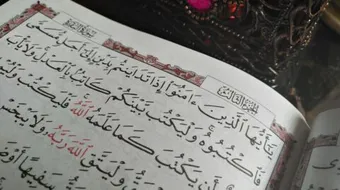 الجزء الثالث
يَٰٓأَيُّهَا ٱلَّذِينَ ءَامَنُوٓا۟ إِذَا تَدَايَنتُم بِدَيْنٍ إِلَىٰٓ أَجَلٍ مُّسَمًّى
فَٱكْتُبُوهُ ۚ وَلْيَكْتُب بَّيْنَكُمْ كَاتِبٌۢ بِٱلْعَدْلِ ۚ وَلَا يَأْبَ
أَن يَكْتُبَ كَمَا عَلَّمَهُ ٱللَّهُ ۚ فَلْيَكْتُبْ
وَلْيَتَّقِ ٱللَّهَ رَبَّهُۥ وَلَا يَبْخَسْ
سَفِيهًا أَوْ